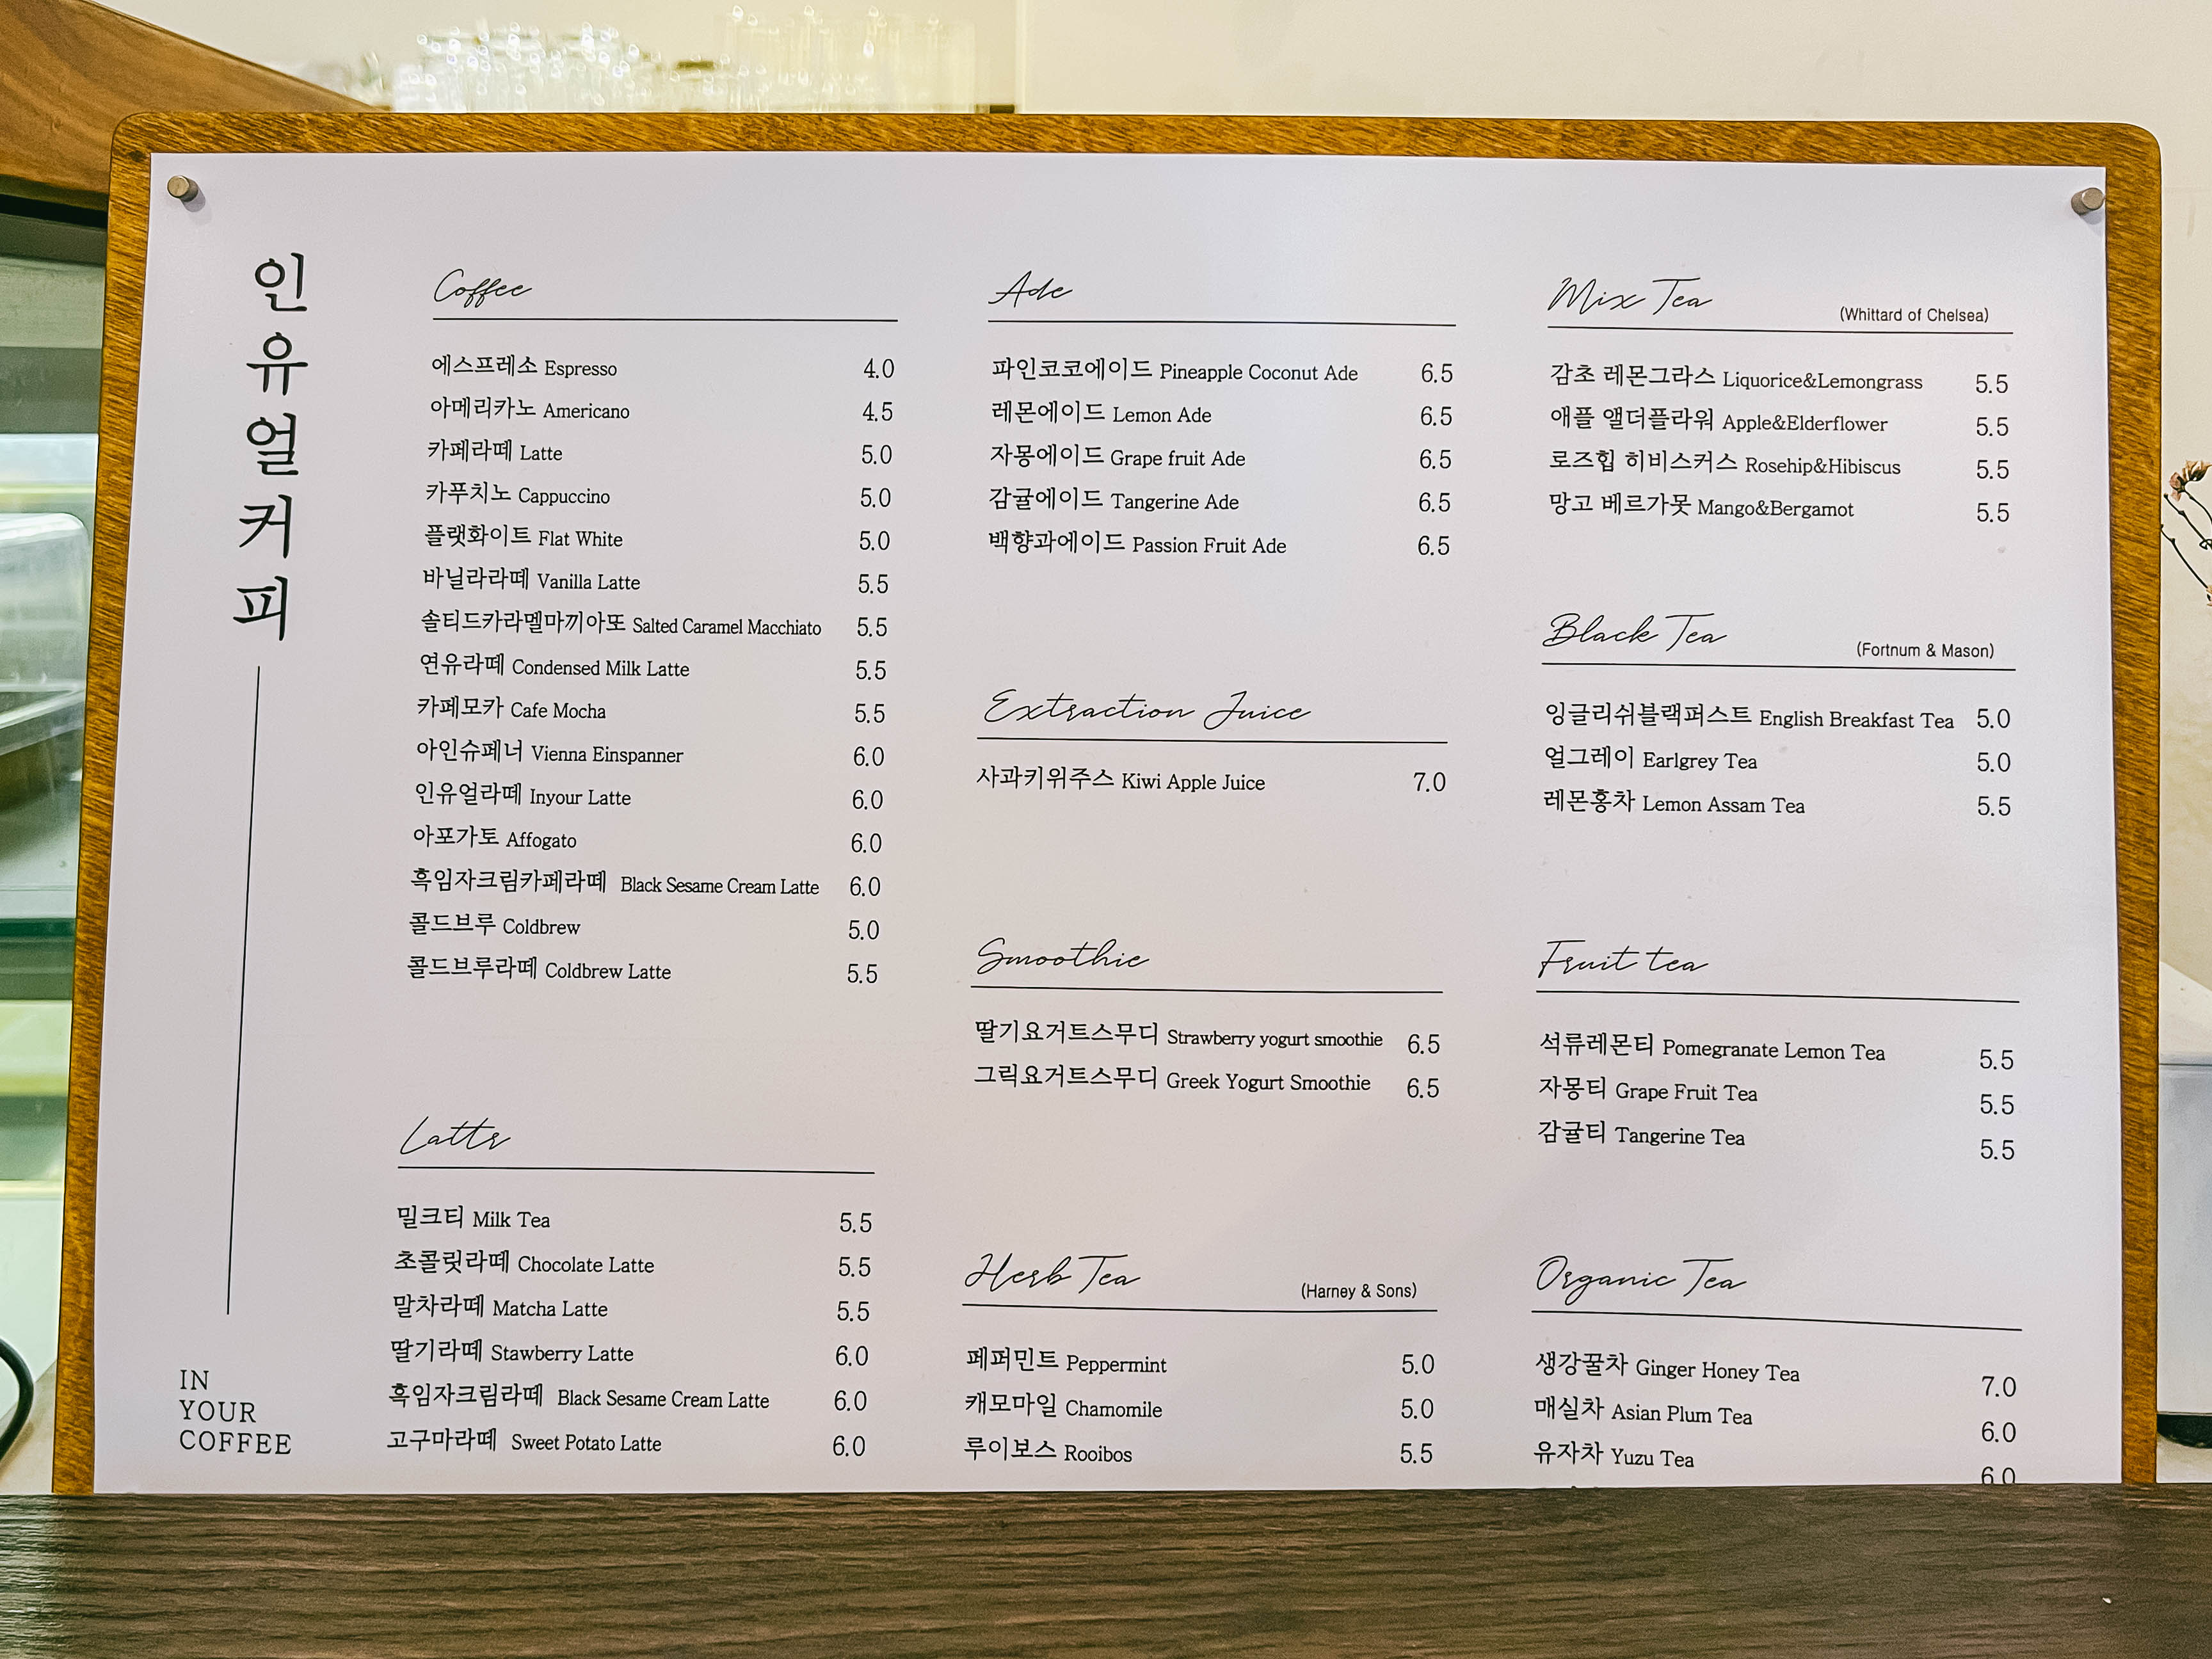 인유얼커피
IN
YOUR
COFFEE
Coffee
에스프레소 Espresso 4.0
아메리카노 Americano 4.5
카페라떼 Latte 5.0
카푸치노 Cappuccino 5.0
플랫화이트 Flat White 5.0
바닐라라떼 Vanilla Latte 5.5
솔티드카라멜마끼아또 Salted Caramel Macchiato 5.5
연유라떼 Condensed Milk Latte 5.5
카페모카 Cafe Mocha 5.5
아인슈페너 Vienna Einspanner 6.0
인유얼라떼 Inyour Latte 6.0
아포가토 Affogato 6.0
흑임자크림카페라떼 Black Sesame Cream Latte 6.0
콜드브루 Coldbrew 5.0
콜드브루라떼 Coldbrew Latte 5.5
Latte
밀크티 Milk Tea 5.5
초콜릿라떼 Chocolate Latte 5.5
말차라떼 Matcha Latte 5.5
딸기라떼 Stawberry Latte 6.0
흑임자크림라떼 Black Sesame Cream Latte 6.0
고구마라떼 Sweet Potato Latte 6.0
Ade
파인코코에이드 Pineapple Coconut Ade 6.5
레몬에이드 Lemon Ade 6.5
자몽에이드 Grape fruit Ade 6.5
감귤에이드 Tangerine Ade 6.5
백향과에이드 Passion Fruit Ade 6.5
Extraction Juice
사과키위주스 Kiwi Apple Juice 7.0
Smoothie
딸기요거트스무디 Strawberry yogurt smoothie 6.5
그릭요거트스무디 Greek Yogurt Smoothie 6.5
Herb Tea (Harney & Sons)
페퍼민트 Peppermint 5.0
캐모마일 Chamomile 5.0
루이보스 Rooibos 5.5
Mix Tea (Whittard of Chelsea)
감초 레몬그라스 Liquorice&Lemongrass 5.5
애플 앨더플라워 Apple&Elderflower 5.5
로즈힙 히비스커스 Rosehip&Hibiscus 5.5
망고 베르가못 Mango&Bergamot 5.5
Black Tea (Fortnum & Mason)
잉글리쉬블랙퍼스트 English Breakfast Tea 5.0
얼그레이 Earlgrey Tea 5.0
레몬홍차 Lemon Assam Tea 5.5
Fruit tea
석류레몬티 Pomegranate Lemon Tea 5.5
자몽티 Grape Fruit Tea 5.5
감귤티 Tangerine Tea 5.5
Organic Tea
생강꿀차 Ginger Honey Tea 7.0
매실차 Asian Plum Tea 6.0
유자차 Yuzu Tea 6.0